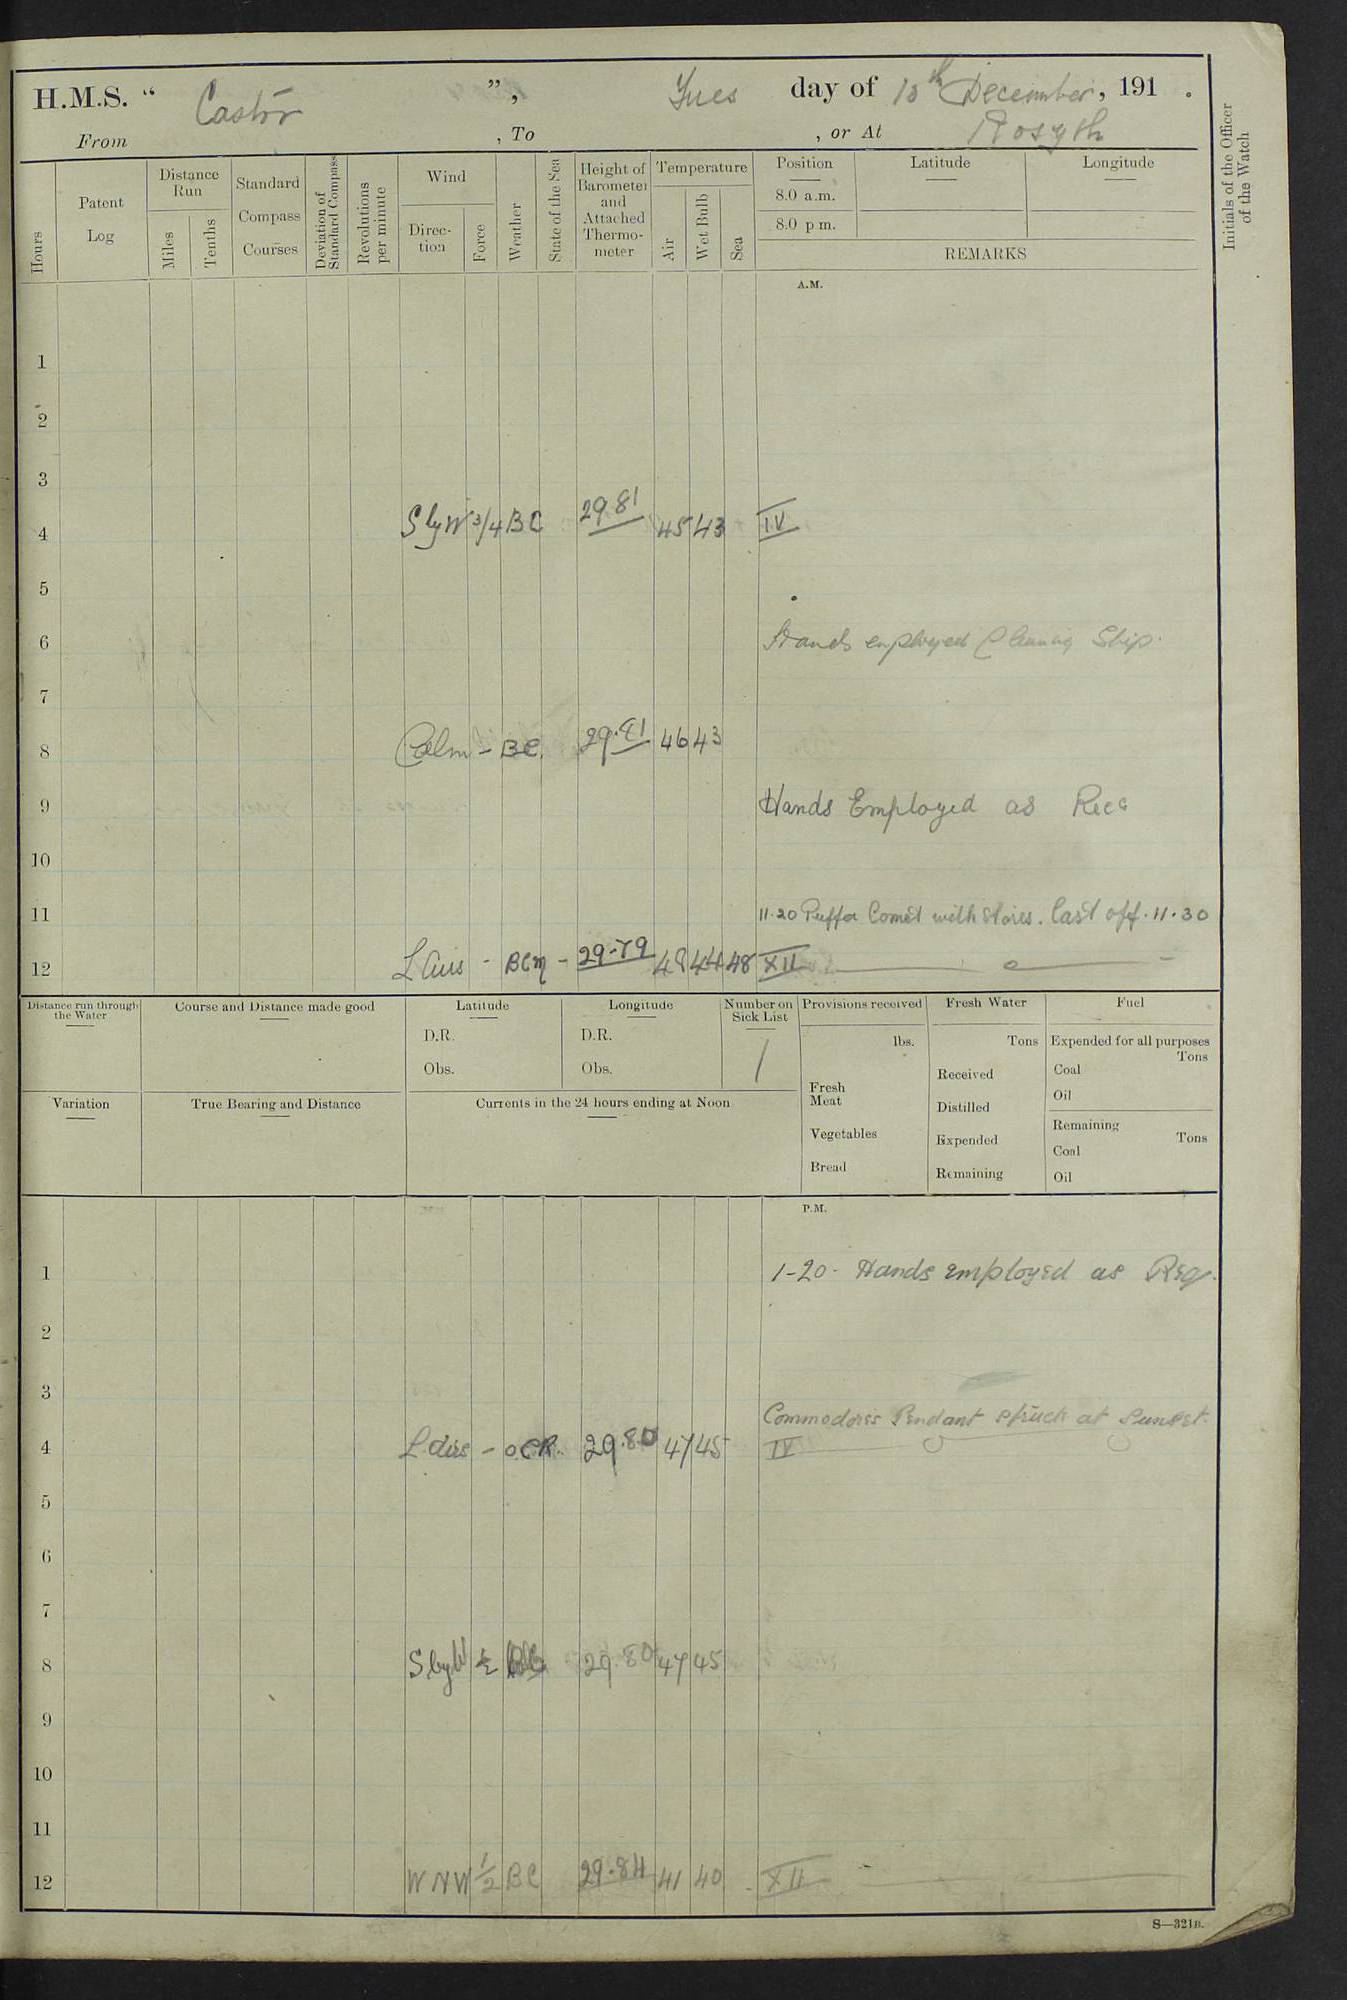 H.M.S. “ Castor ” , Tues day of 10th December, 191 .
From , To , or At Rosyth
Initials of the Officer of the Watch
Hours
Patent Log
Distance Run
Miles
Tenths
Standard Compass Courses
Deviation of Standard Compass
Revolutions per minute
Wind
Direction
Force
Weather
State of the Sea
Height of Barometer and Attached Thermometer
Temperature
Air
Wet Bulb
Sea
Position
Latitude
Longitude
8.0 a.m.
8.0 p m.
REMARKS
A.M.
1
2
3
4 S by W 3/4 BC 29.81 45 43 IV
5
6 Hands employed Cleaning Ship.
7
8 Calm - BC. 29.81 46 43
9 Hands Employed as Req
10
11 11.20 Puffer Comet with stores. Cast off. 11.30
12 L Airs - BCM - 29.79 48 44 48 XII
Distance run through the Water
Course and Distance made good
Latitude
D.R.
Obs.
Longitude
D.R.
Obs.
Number on Sick List
1
Provisions received
lbs.
Fresh Meat
Vegetables
Bread
Fresh Water
Tons
Received
Distilled
Expended
Remaining
Fuel
Expended for all purposes
Tons
Coal
Oil
Remaining
Tons
Coal
Oil
Variation
True Bearing and Distance
Currents in the 24 hours ending at Noon
P.M.
1 1-20- Hands employed as Req.
2
3
Commodores Pendant struck at Sunset.
4 L. airs - OCR. 29.80 47 45 IV
5
6
7
8 S by W 29.80 47 45
9
10
11
12 WNW 1/2 BC 29.84 41 40 XII
S—321B.